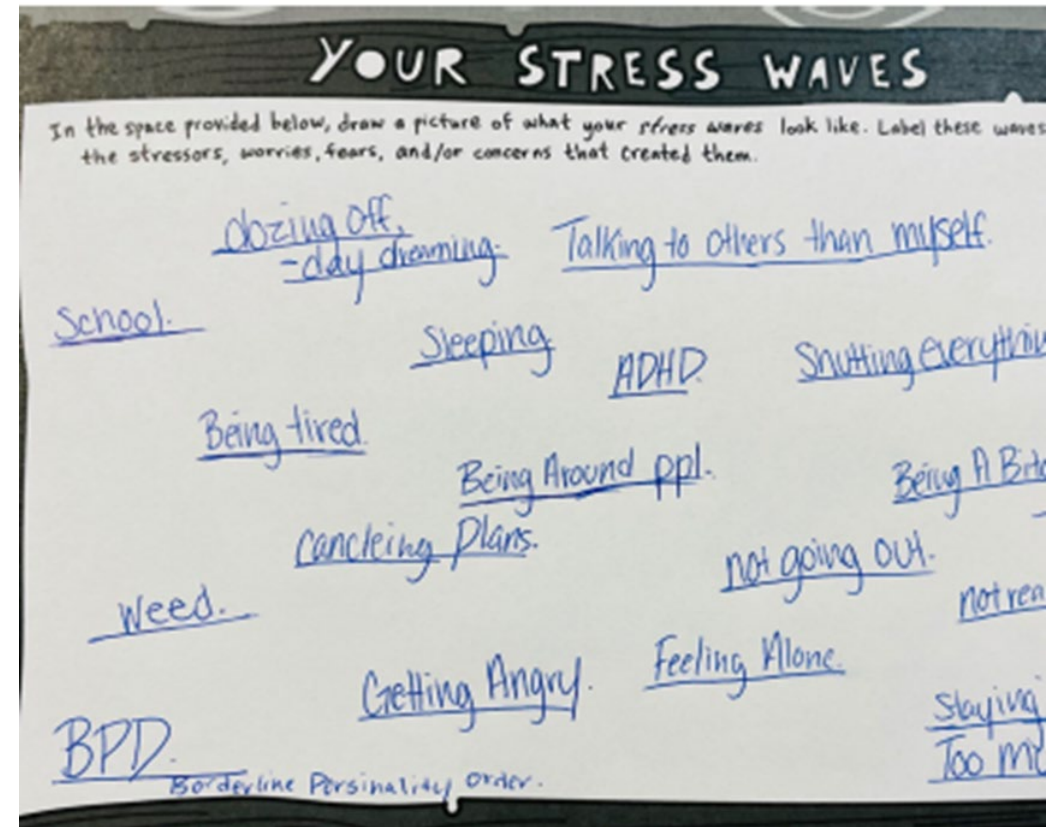 YOUR STRESS WAVES
In the space provided below, draw a picture of what your stress waves look like. Label these waves
the stressors, worries, fears, and/or concerns that created them.
dozing off,
=day dreaming.
Talking to others than myself.
School.
Sleeping
ADHD.
Shutting everythin
Being tired.
Being Around ppl.
Being A Bitc
cancleing Plans.
not going out.
Weed.
not rea
Getting Angry.
Feeling Alone.
Staying
Too mu
BPD.
Borderline Persinality order.